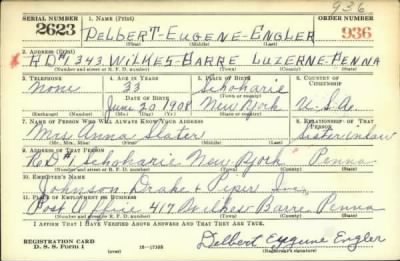 936
SERIAL NUMBER 1. NAME (Print) ORDER NUMBER
2623 DELBERT-EUGENE-ENGLER 936
(First) (Middle) (Last)
2. ADDRESS (Print)
RD#1 343 WILKES-BARRE LUZERNE-PENNA
(Number and street or R. F. D. number) (Town) (County) (State)
3. TELEPHONE 4. AGE IN YEARS 5. PLACE OF BIRTH 6. COUNTRY OF CITIZENSHIP
None 33 Schoharie
DATE OF BIRTH (Town or county)
June 20 1908 New York U-S-A.
(Exchange) (Number) (Mo.) (Day) (Yr.) (State or country)
7. NAME OF PERSON WHO WILL ALWAYS KNOW YOUR ADDRESS 8. RELATIONSHIP OF THAT PERSON
Mrs Anna Slater Sister in law
(Mr., Mrs., Miss) (First) (Middle) (Last)
9. ADDRESS OF THAT PERSON
R.D #1, Schoharie New York Penna
(Number and street or R. F. D. number) (Town) (County) (State)
10. EMPLOYER'S NAME
Johnson, Drake & Piper Inc,
11. PLACE OF EMPLOYMENT OR BUSINESS
Post Office 417 Wilkes Barre Penna
(Number and street or R. F. D. number) (Town) (County) (State)
I AFFIRM THAT I HAVE VERIFIED ABOVE ANSWERS AND THAT THEY ARE TRUE.
REGISTRATION CARD
D. S. S. Form 1 16-17105 Delbert Eugene Engler
(Registrant's signature)